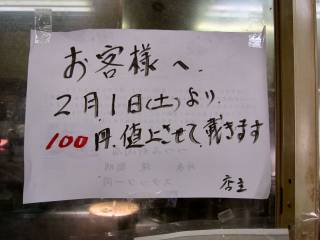 お客様へ.
2月1日(土)より.
100円.値上させて戴きます
店主